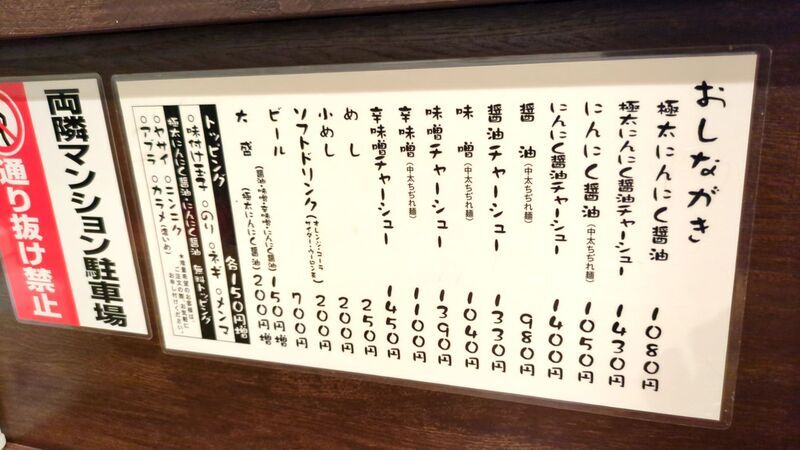 おしながき
極太にんにく醤油 1080円
極太にんにく醤油チャーシュー 1430円
にんにく醤油(中太ちぢれ麺) 1050円
にんにく醤油チャーシュー 1400円
醤油(中太ちぢれ麺) 980円
醤油チャーシュー 1330円
味噌(中太ちぢれ麺) 1040円
味噌チャーシュー 1390円
辛味噌(中太ちぢれ麺) 1100円
辛味噌チャーシュー 1450円
めし 250円
小めし 200円
ソフトドリンク(オレンジ・コーラ サイダー・ウーロン茶) 200円
ビール 700円
大盛 (醤油・味噌・辛味噌・にんにく醤油) 150円増
(極太にんにく醤油) 200円増
トッピング 各150円増
○味付け玉子 ○のり ○ネギ ○メンマ
極太にんにく醤油・にんにく醤油 無料トッピング
○ヤサイ ○ニンニク
○アブラ ○カラメ(濃いめ)
★増量希望のお客様は
ご注文の際、お気軽に
お申し付けください。
両隣マンション駐車場
通り抜け禁止